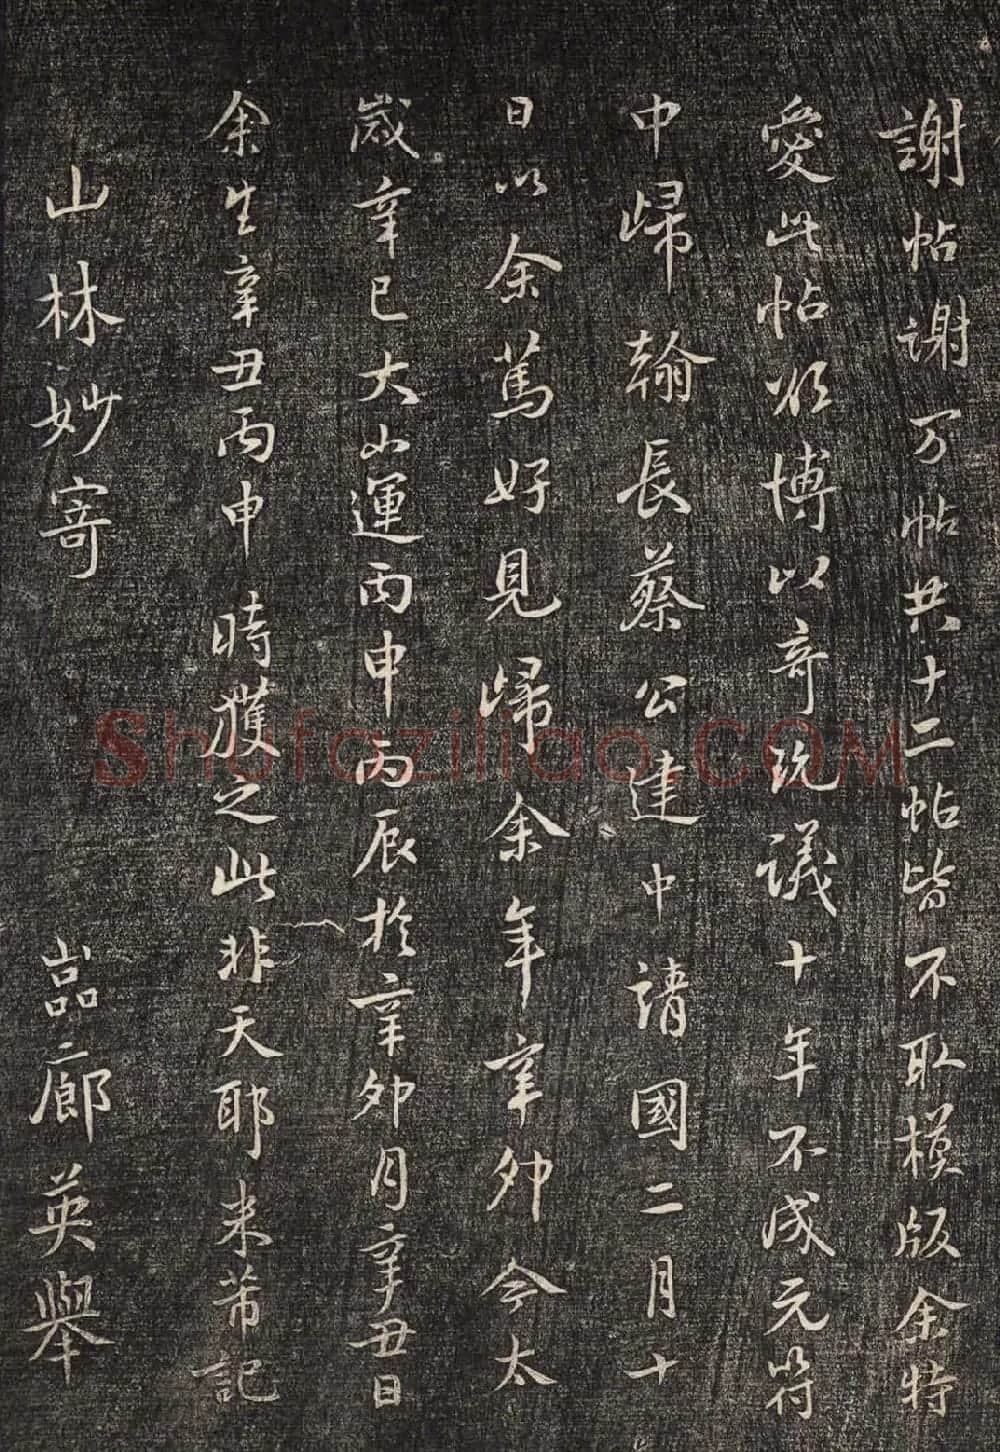 謝帖謝万帖共十二帖皆不取模版余特
愛此帖欲博以奇玩議十年不成元符
中歸翰長蔡公建中靖國二月十
日以余篤好見歸余年辛卯今太
歲辛巳大小運丙申丙辰於辛卯月辛丑日
余生辛丑丙申時獲之此非天耶米芾記
山林妙寄 巖廊英舉
Shufaziliao.COM